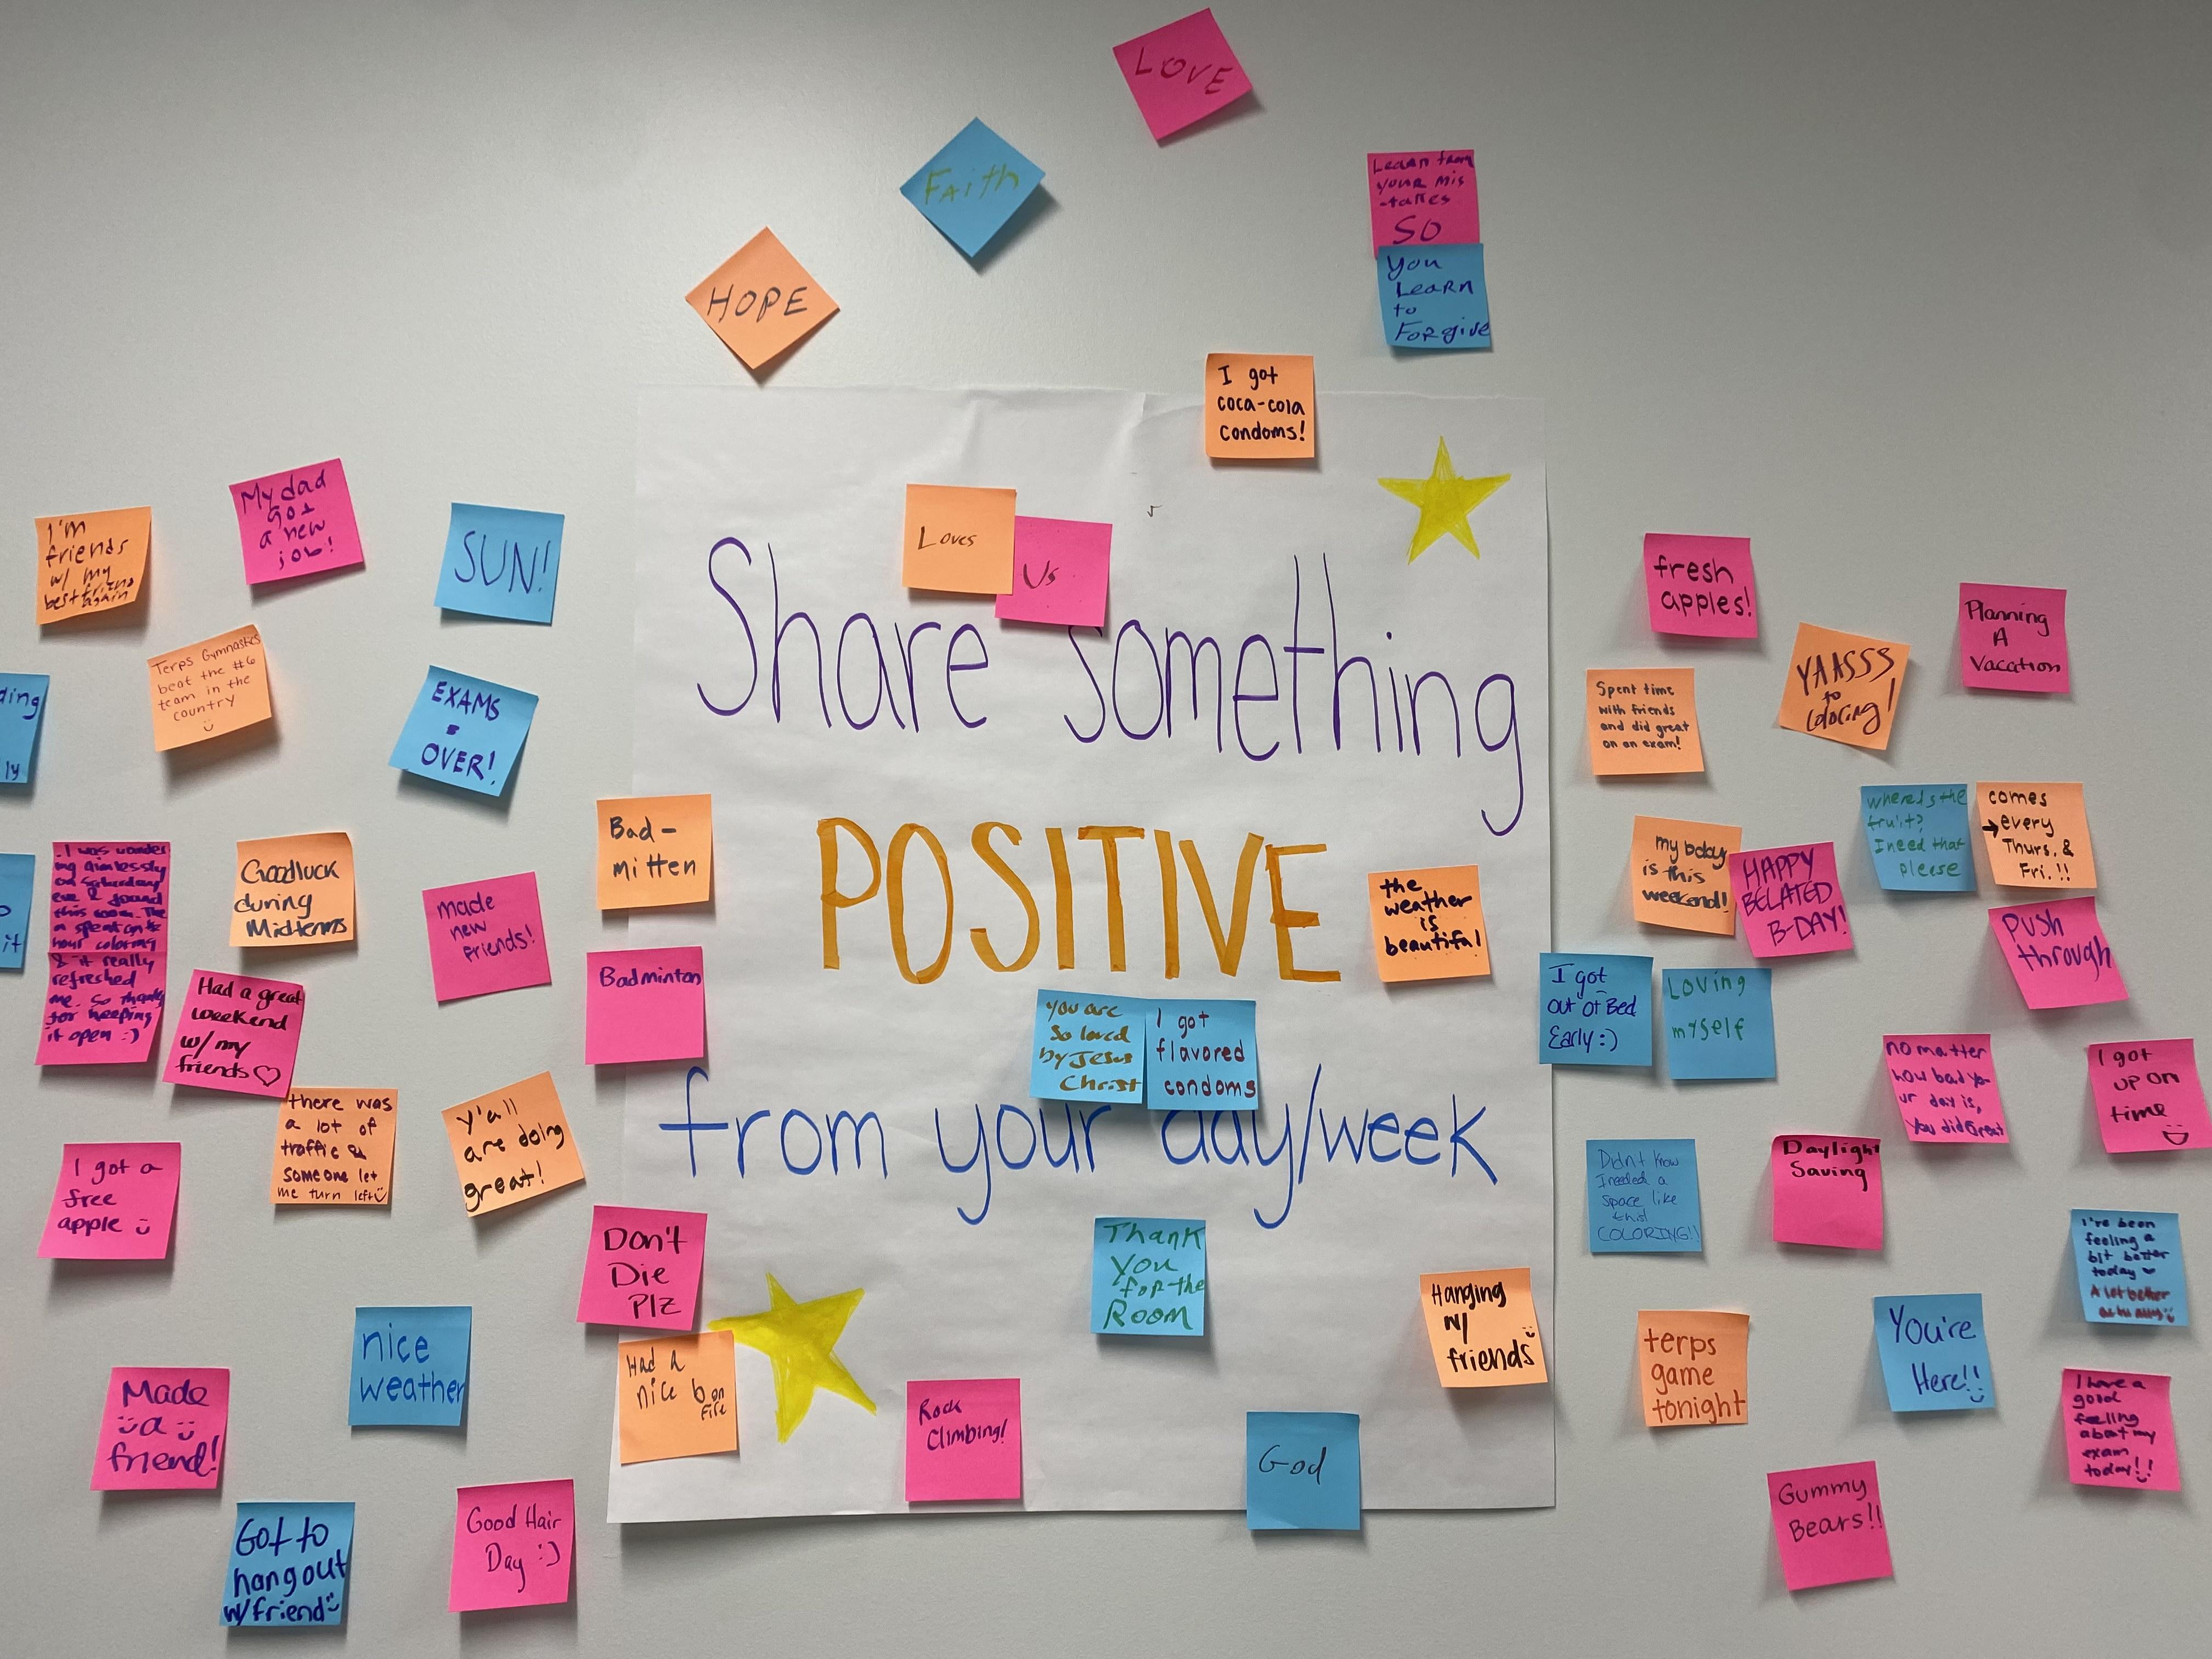 LOVE
FAith
HOPE
Learn from
your mis
-takes
SO
you
Learn
to
Forgive
I got
coca-cola
condoms!
Loves
Us
Share something
POSITIVE
from your day/week
I'm
friends
w/ my
best friend
again
My dad
got
a new
job!
SUN!
Terps Gymnastics
beat the #6
team in the
country
EXAMS
=
OVER!
ding
ly
it
I was wander
ing aimlessly
on Saturday
eve & found
this room.
hour coloring
& it really
refreshed
me. So thanks
for keeping
it open :)
Goodluck
during
Midterms
made
new
friends!
Bad-
mitten
Badminton
Had a great
weekend
w/ my
friends ♡
there was
a lot of
traffic &
someone let
me turn left
y'all
are doing
great!
I got a
free
apple
Don't
Die
Plz
nice
weather
Had a
nice bon
Fire
Made
a
friend!
Got to
hang out
w/ friend
Good Hair
Day :)
the
weather
is
beautiful
you are
so loved
by Jesus
Christ
I got
flavored
condoms
Thank
You
for the
Room
Hanging
w/
friends
Rock
Climbing!
God
fresh
apples!
Planning
A
Vacation
YAASSS
to
coloring!
Spent time
with friends
and did great
on an exam!
where's the
fruit?
I need that
please
comes
→ every
Thurs. &
Fri.!!
my bday
is this
weekend!
HAPPY
BELATED
B-DAY!
Push
through
I got
out of Bed
Early :)
Loving
myself
no matter
how bad yo-
ur day is,
You did Great
I got
up on
time
Didn't know
I needed a
space like
this!
COLORING!!
Daylight
Saving
I've been
feeling a
bit better
today
A lot better
actually
terps
game
tonight
You're
Here!!
I have a
good
feeling
about my
exam
today!!
Gummy
Bears!!